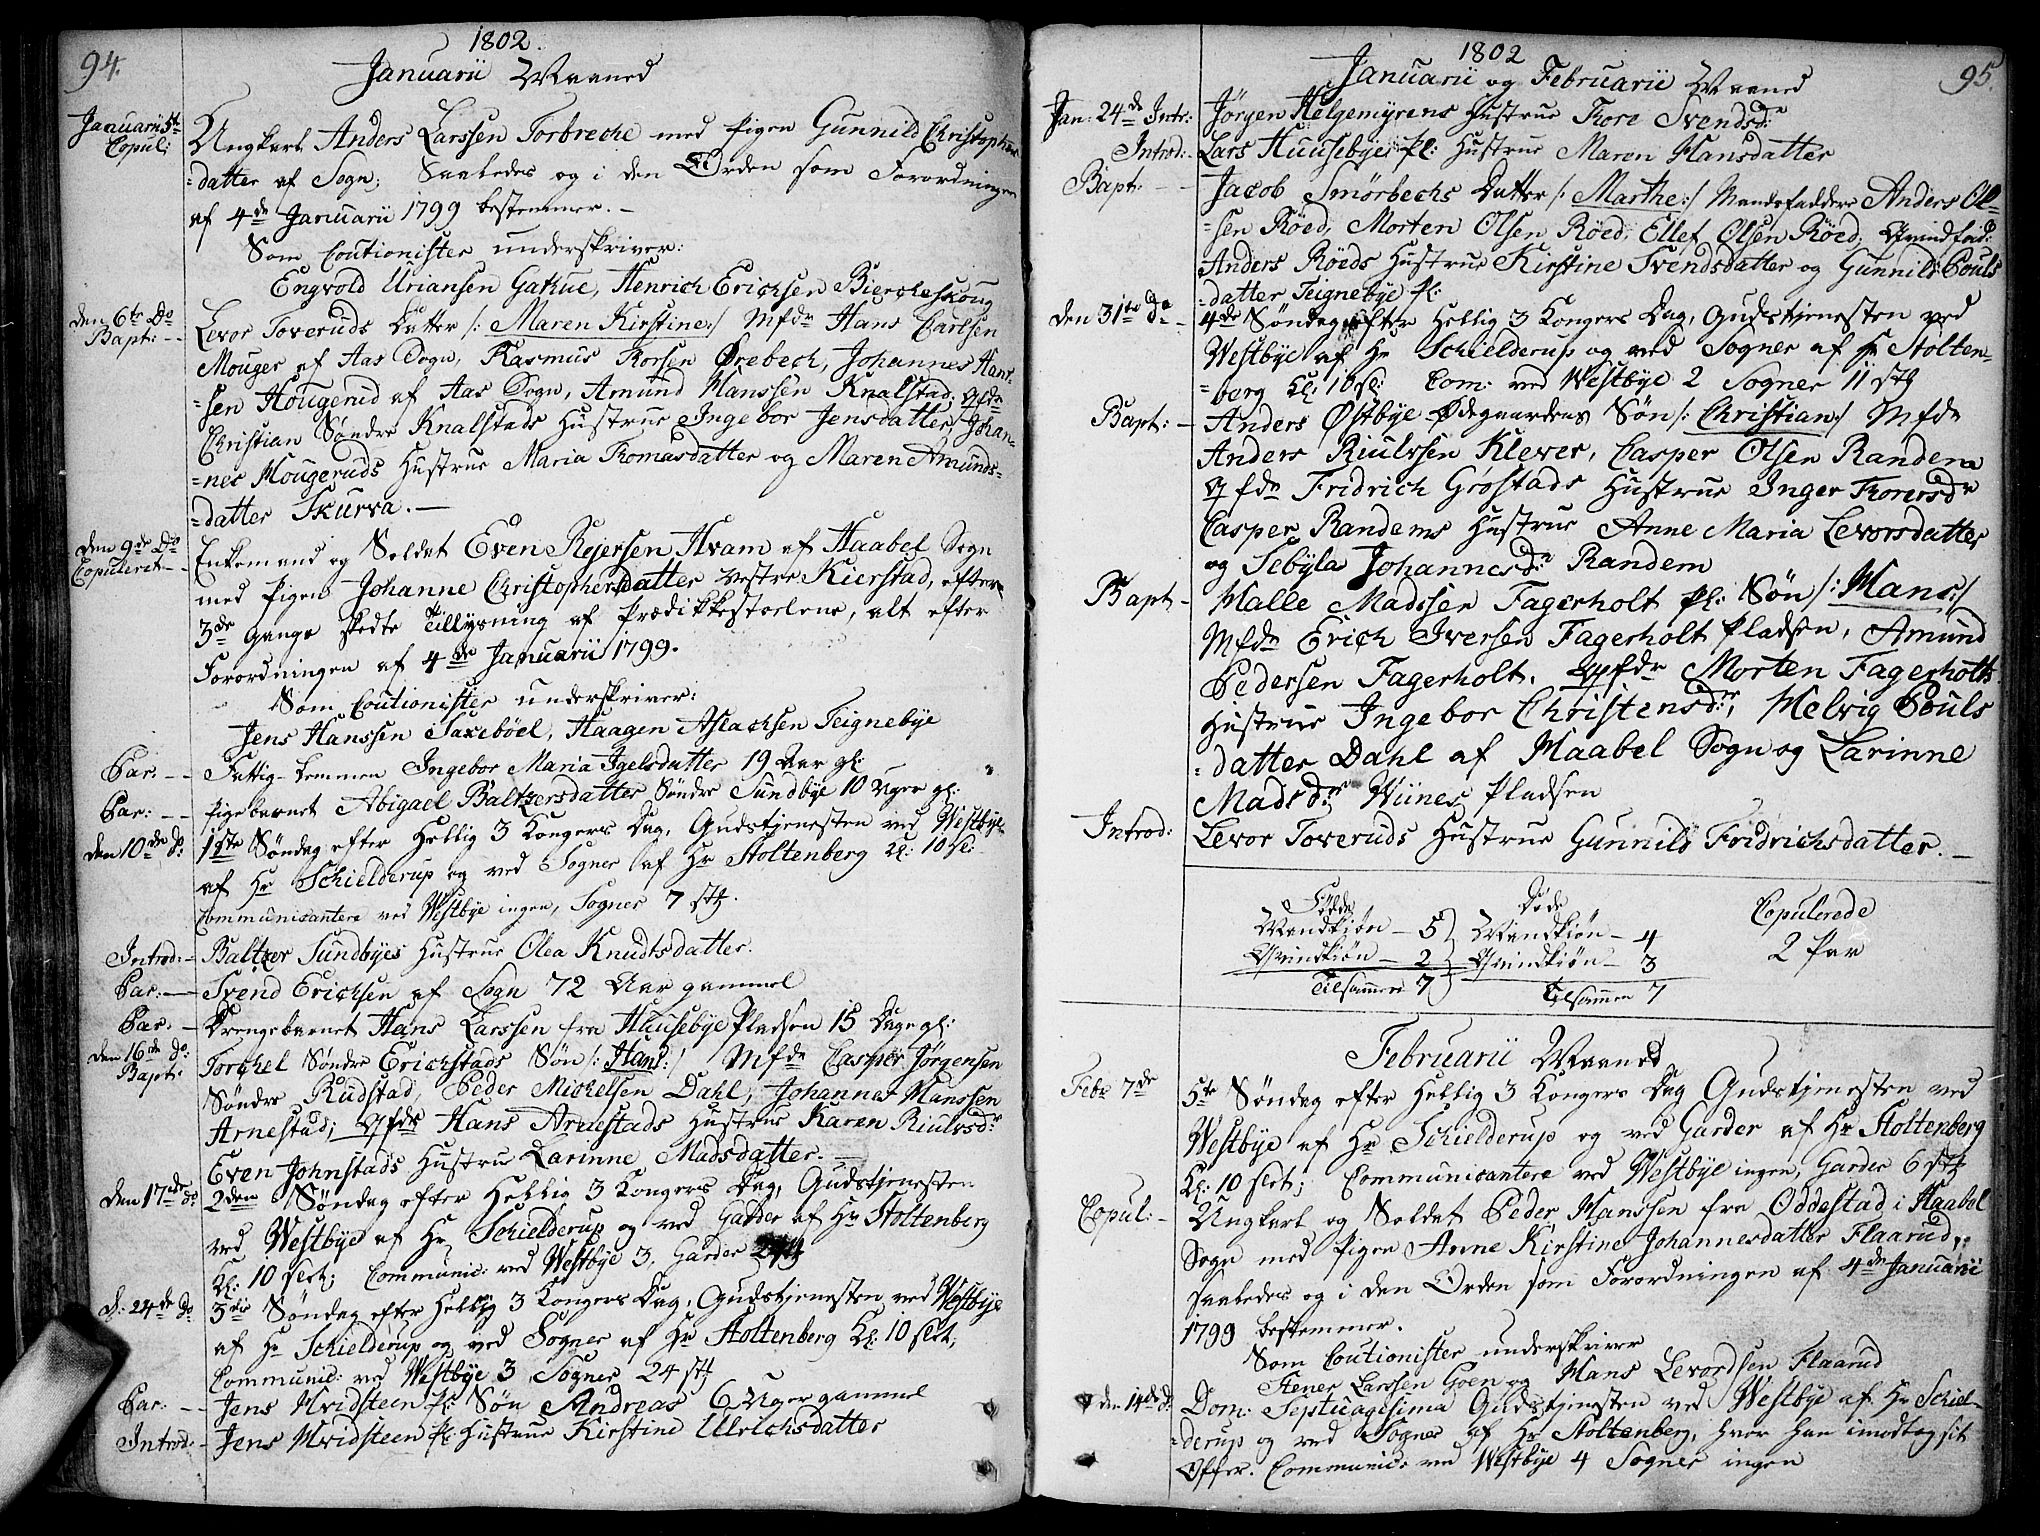 94.
1802.
Januarii Maaned
Januarii 5te Copul: Ungkarl Anders Larssen Torbreche med Pigen Gunnild Christophers
=datter af Sogn; Saaledes og i den Orden som Forordningen
af 4de Januarii 1799 bestemmer. –
Som Coutionister underskriver:
Engvold Uriansen Gakue, Henrich Erichsen Biercheskoug
den 6te Do Bapt: – – Levor Toveruds Datter /: Maren Kirstine :/ Mfdr Hans Carlsen
Mouger af Aas Sogn, Rasmus Thorsen Ørebech, Johannes Hans=
=sen Hougerud af Aas Sogn, Amund Hanssen Knalstad; Qfdr
Christian Søndre Knalstads Hustrue Ingebor Jensdatter, Johan=
=nes Hougeruds Hustrue Maria Thomasdatter og Maren Amunds=
=datter Skurva. –
den 9de Do Copuleret – Enkemand og Soldat Even Rejersen Hvam af Haabel Sogn
med Pigen Johanne Christophersdatter Vestre Kierstad, efter
3de Gange skedte Tillysning af Prædikkestoelene, alt efter
Forordningen af 4de Januarii 1799.
Som Coutionister underskriver:
Jens Hanssen Saxebøel, Haagen Aslachsen Teignebye
Par: – – Fattig-Lemmen Ingebor Maria Igelsdatter 19 Aar gl:
Par: – – Pigebarnet Abigael Baltzersdatter Søndre Sundbye 10 Uger gl:
den 10de do: 1ste Søndag efter Hellig 3 Kongers Dag, Gudstjenesten ved Westbye
af Hr Schielderup og ved Sogner af Hr Stoltenberg Kl: 10 sl:
Communicantere ved Westbye ingen, Sogner 7 stk.
Introd: – Baltzer Sundbyes Hustrue Olea Knudtsdatter.
Par: – Svend Erichsen af Sogn 72 Aar gammel
Par: – Drengebarnet Hans Larssen fra Huusebye Pladsen 15 Dage gl:
den 16de do: Bapt: Torchel Søndre Erichstads Søn /: Hans :/ Mfdr Casper Jørgensen
Søndre Rudstad, Peder Michelsen Dahl, Johannes Hanssen
Arnestad; Qfdr Hans Arnestads Hustrue Karen Riulvsdr
Even Johnstads Hustrue Larinne Madsdatter. –
den 17de do 2den Søndag efter Hellig 3 Kongers Dag, Gudstjenesten
ved Westbye af Hr Schielderup og ved Garder af Hr Stoltenberg
Kl: 10 slet; Communic: ved Westbye 3, Garder
d: 24de do 3die Søndag efter Hellig 3 Kongers Dag, Gudstjenesten ved Westbye
af Hr Schielderup og ved Sogner af Hr Stoltenberg Kl: 10 slet;
Communic: ved Westbye 3 Sogner 24 stk
Par: – – Jens Hvidsteen Pl: Søn Andreas 6 Uger gammel
Introd: – Jens Hvidsteen Pl: Hustrue Kirstine Ulrichsdatter
95.
1802
Januarii og Februarii Maaned
Jan: 24de Intr: Jörgen Helgemyrens Hustrue Thore Svendsdr
Introd: – Lars Huusebye Pl: Hustrue Maren Hansdatter
Bapt: – – Jacob Smørbechs Datter /: Marthe :/ Mandefaddere Anders Ol=
=sen Röed, Morten Olsen Röed, Ellef Olsen Röed; Qvindfad:
Anders Röeds Hustrue Kirstine Svendsdatter og Gunnild Pouls
=datter Teignebye Pl:
den 31te do – 4de Søndag efter Hellig 3 Kongers Dag, Gudstjenesten ved
Westbye af Hr Schielderup og ved Sogner af Hr Stolten=
=berg Kl: 10 sl: Com: ved Westbye 2 Sogner 11 stk
Bapt: – Anders Østbye Ødegaardens Søn /: Christian :/ Mfdr
Anders Riulvssen Klever, Casper Olsen Randem
Qfdr Fridrich Grøstads Hustrue Inger Thorersdr
Casper Randems Hustrue Anne Maria Levorsdatter
og Sebyla Johannesdr Randem
Bapt – Halle Madssen Fagerholt Pl: Søn /: Hans :/
Mfdr Erich Iversen Fagerholt Pladsen, Amund
Pedersen Fagerholt. Qfdr Morten Fagerholts
Hustrue Ingebor Christensdr, Helvig Pouls
=datter Dahl af Haabel Sogn og Larinne
Madsdr Wiines Pladsen
Introd: Levor Toveruds Hustrue Gunnild Fridrichsdatter. –
Fødde Døde Copulerede
Mandkiön – 5 Mandkiön – 4 2 Par
Qvindkiön – 2 Qvindkiön – 3
Tilsammen 7 Tilsammen 7
Februarii Maaned
Febr 7de 5te Søndag efter Hellig 3 Kongers Dag Gudstjenesten ved
Westbye af Hr Schielderup og ved Garder af Hr Stoltenberg
Kl: 10 slet; Communicantere ved Westbye ingen, Garder 6 stk
Copul: – Ungkarl og Soldat Peder Hanssen fra Oddestad i Haabel
Sogn med Pigen Anne Kirstine Johannesdatter Flaarud,
saaledes og i den Orden som Forordningen af 4de Januarii
1799 bestemmer.
Som Coutionister underskriver
Stener Larssen Goen og Hans Levordsen Flaarud
den 14de do Dom: Septuagesima Gudstjenesten ved Westbye af Hr Schiel=
=derup og ved Sogner af Hr Stoltenberg, hvor han imodtog sit
Offer. Communic: ved Westbye 4 Sogner ingen